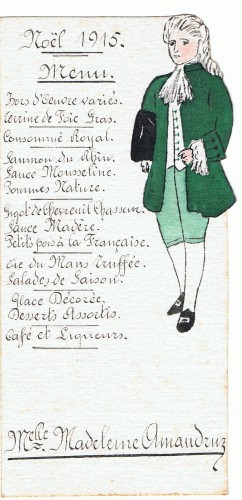 Noël 1915.
Menu.
Hors d'Œuvre variés.
Terrine de Foie Gras.
Consommé Royal.
Saumon du Rhin.
Sauce Mousseline.
Pommes Nature.
Gigot de Chevreuil Chasseur.
Sauce Madère.
Petits pois à la Française.
Oie du Mans Truffée.
Salades de Saison.
Glace Décorée.
Desserts Assortis.
Café et Liqueurs.
Melle Madeleine Amaudruz